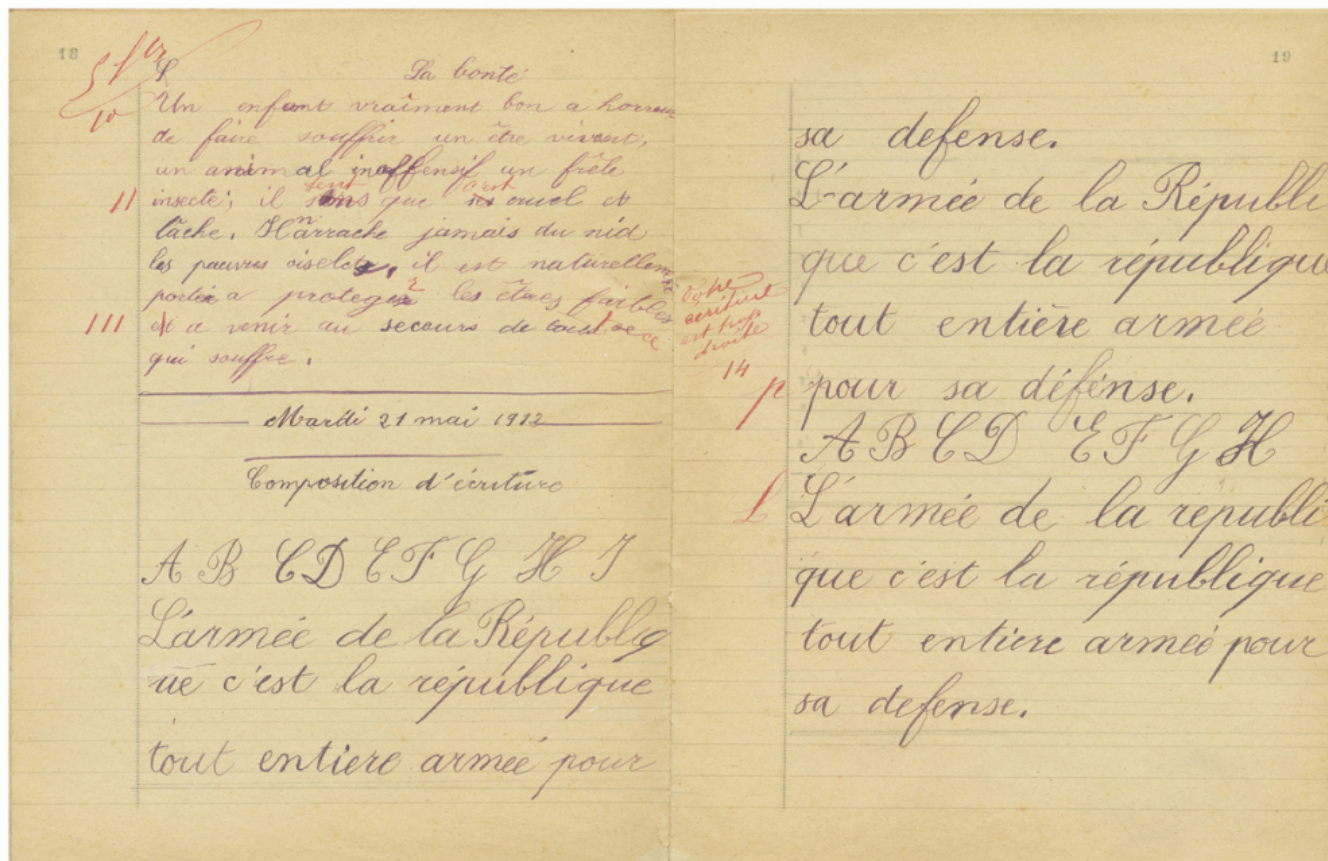 18
5 fr
10
La bonté
Un enfant vraiment bon a horreur
de faire souffrir un être vivant,
un animal inoffensif un frêle
II insecte; il sens sent que ses c'est cruel et
lâche. Il n'arrache jamais du nid
les pauvres oiselets, il est naturellement
portée a proteger les êtres faibles
III et a venir au secours de tout ce ce
qui souffre.
Mardi 21 mai 1912
Composition d'écriture
A B C D E F G H I
L'armée de la Républiq
ue c'est la république
tout entiere armée pour
19
sa defense.
L'armée de la Républi
que c'est la république
tout entière armeé
pour sa défense.
votre
écriture
est trop
droite
14
p
A B C D E F G H
L L'armée de la republi
que c'est la république
tout entiere armeé pour
sa defense.